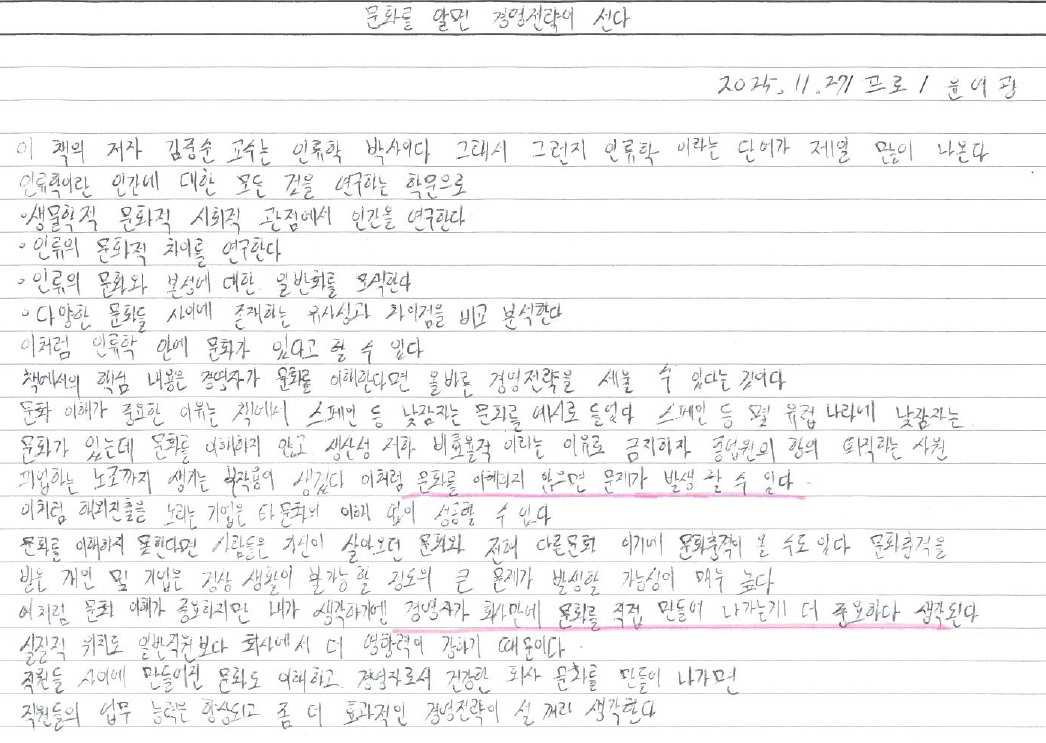 문화를 알면 경영전략이 선다
2025.11.27 / 프로 / 윤여광
이 책의 저자 김중순 교수는 인류학 박사이다 그래서 그런지 인류학 이라는 단어가 제일 많이 나온다
인류학이란 인간에 대한 모든 것을 연구하는 학문으로
·생물학적 문화적 사회적 관점에서 인간을 연구한다
·인류의 문화적 차이를 연구한다
·인류의 문화와 본성에 대한 일반화를 모색한다
·다양한 문화들 사이에 존재하는 유사성과 차이점을 비교 분석한다
이처럼 인류학 안에 문화가 있다고 할 수 있다
책에서의 핵심 내용은 경영자가 문화를 이해한다면 올바른 경영전략을 세울 수 있다는 것이다
문화 이해가 중요한 이유는 책에서 스페인 등 낮잠자는 문화를 예시로 들었다 스페인 등 몇 유럽 나라에 낮잠자는
문화가 있는데 문화를 이해하지 않고 생산성 저하 비효율적 이라는 이유로 금지하자 종업원의 항의 퇴직하는 사원
파업하는 노조까지 생기는 부작용이 생겼다 이처럼 문화를 이해하지 않으면 문제가 발생 할 수 있다
이처럼 해외진출을 노리는 기업은 타문화의 이해 없이 성공할 수 없다
문화를 이해하지 못한다면 사람들은 자신이 살아오던 문화와 전혀 다른문화 이기에 문화충격이 올 수도 있다 문화충격을
받은 개인 및 기업은 정상 생활이 불가능 할 정도의 큰 문제가 발생할 가능성이 매우 높다
이처럼 문화 이해가 중요하지만 내가 생각하기엔 경영자가 회사만에 문화를 직접 만들어 나가는게 더 중요하다 생각된다
실질적 위치도 일반직원보다 회사에서 더 영향력이 강하기 때문이다
직원들 사이에 만들어진 문화도 이해하고 경영자로서 건강한 회사 문화를 만들어 나가면
직원들의 업무 능력은 향상되고 좀 더 효과적인 경영전략이 설 꺼라 생각한다